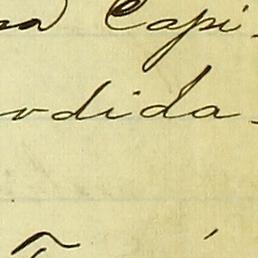 na Capi-
odida-